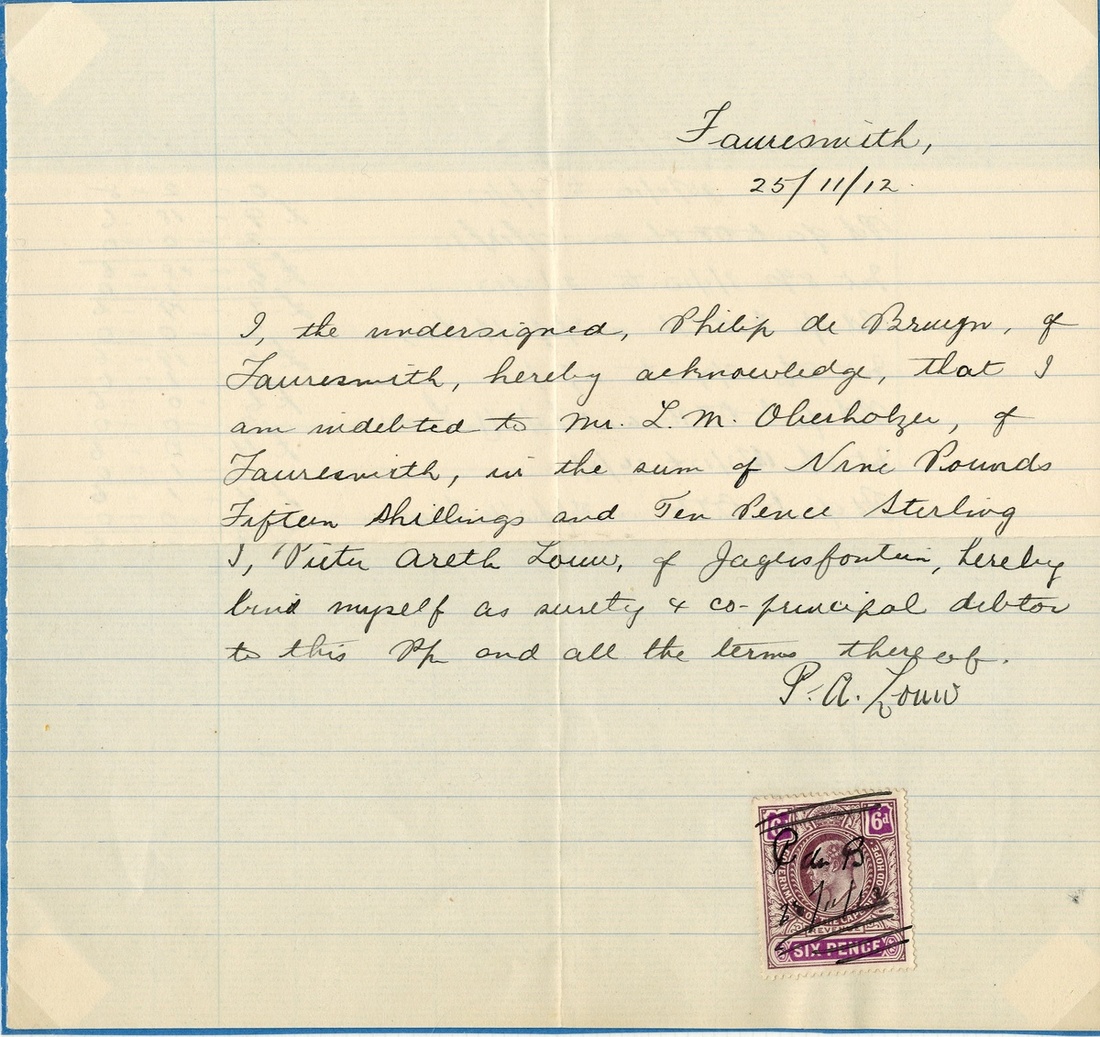 Fauresmith,
25/11/12.
I, the undersigned, Philip de Bruyn, of
Fauresmith, hereby acknowledge, that I
am indebted to Mr. L. M. Oberholzer, of
Fauresmith, in the sum of Nine Pounds
Fifteen Shillings and Ten Pence Sterling
I, Pieter Areth Louw, of Jagersfontein, hereby
bind myself as surety & co-principal debtor
to this and all the terms thereof.
P. A. Louw
6d
P de B
GOVERNMENT OF THE CAPE OF GOOD HOPE
REVENUE
SIX PENCE